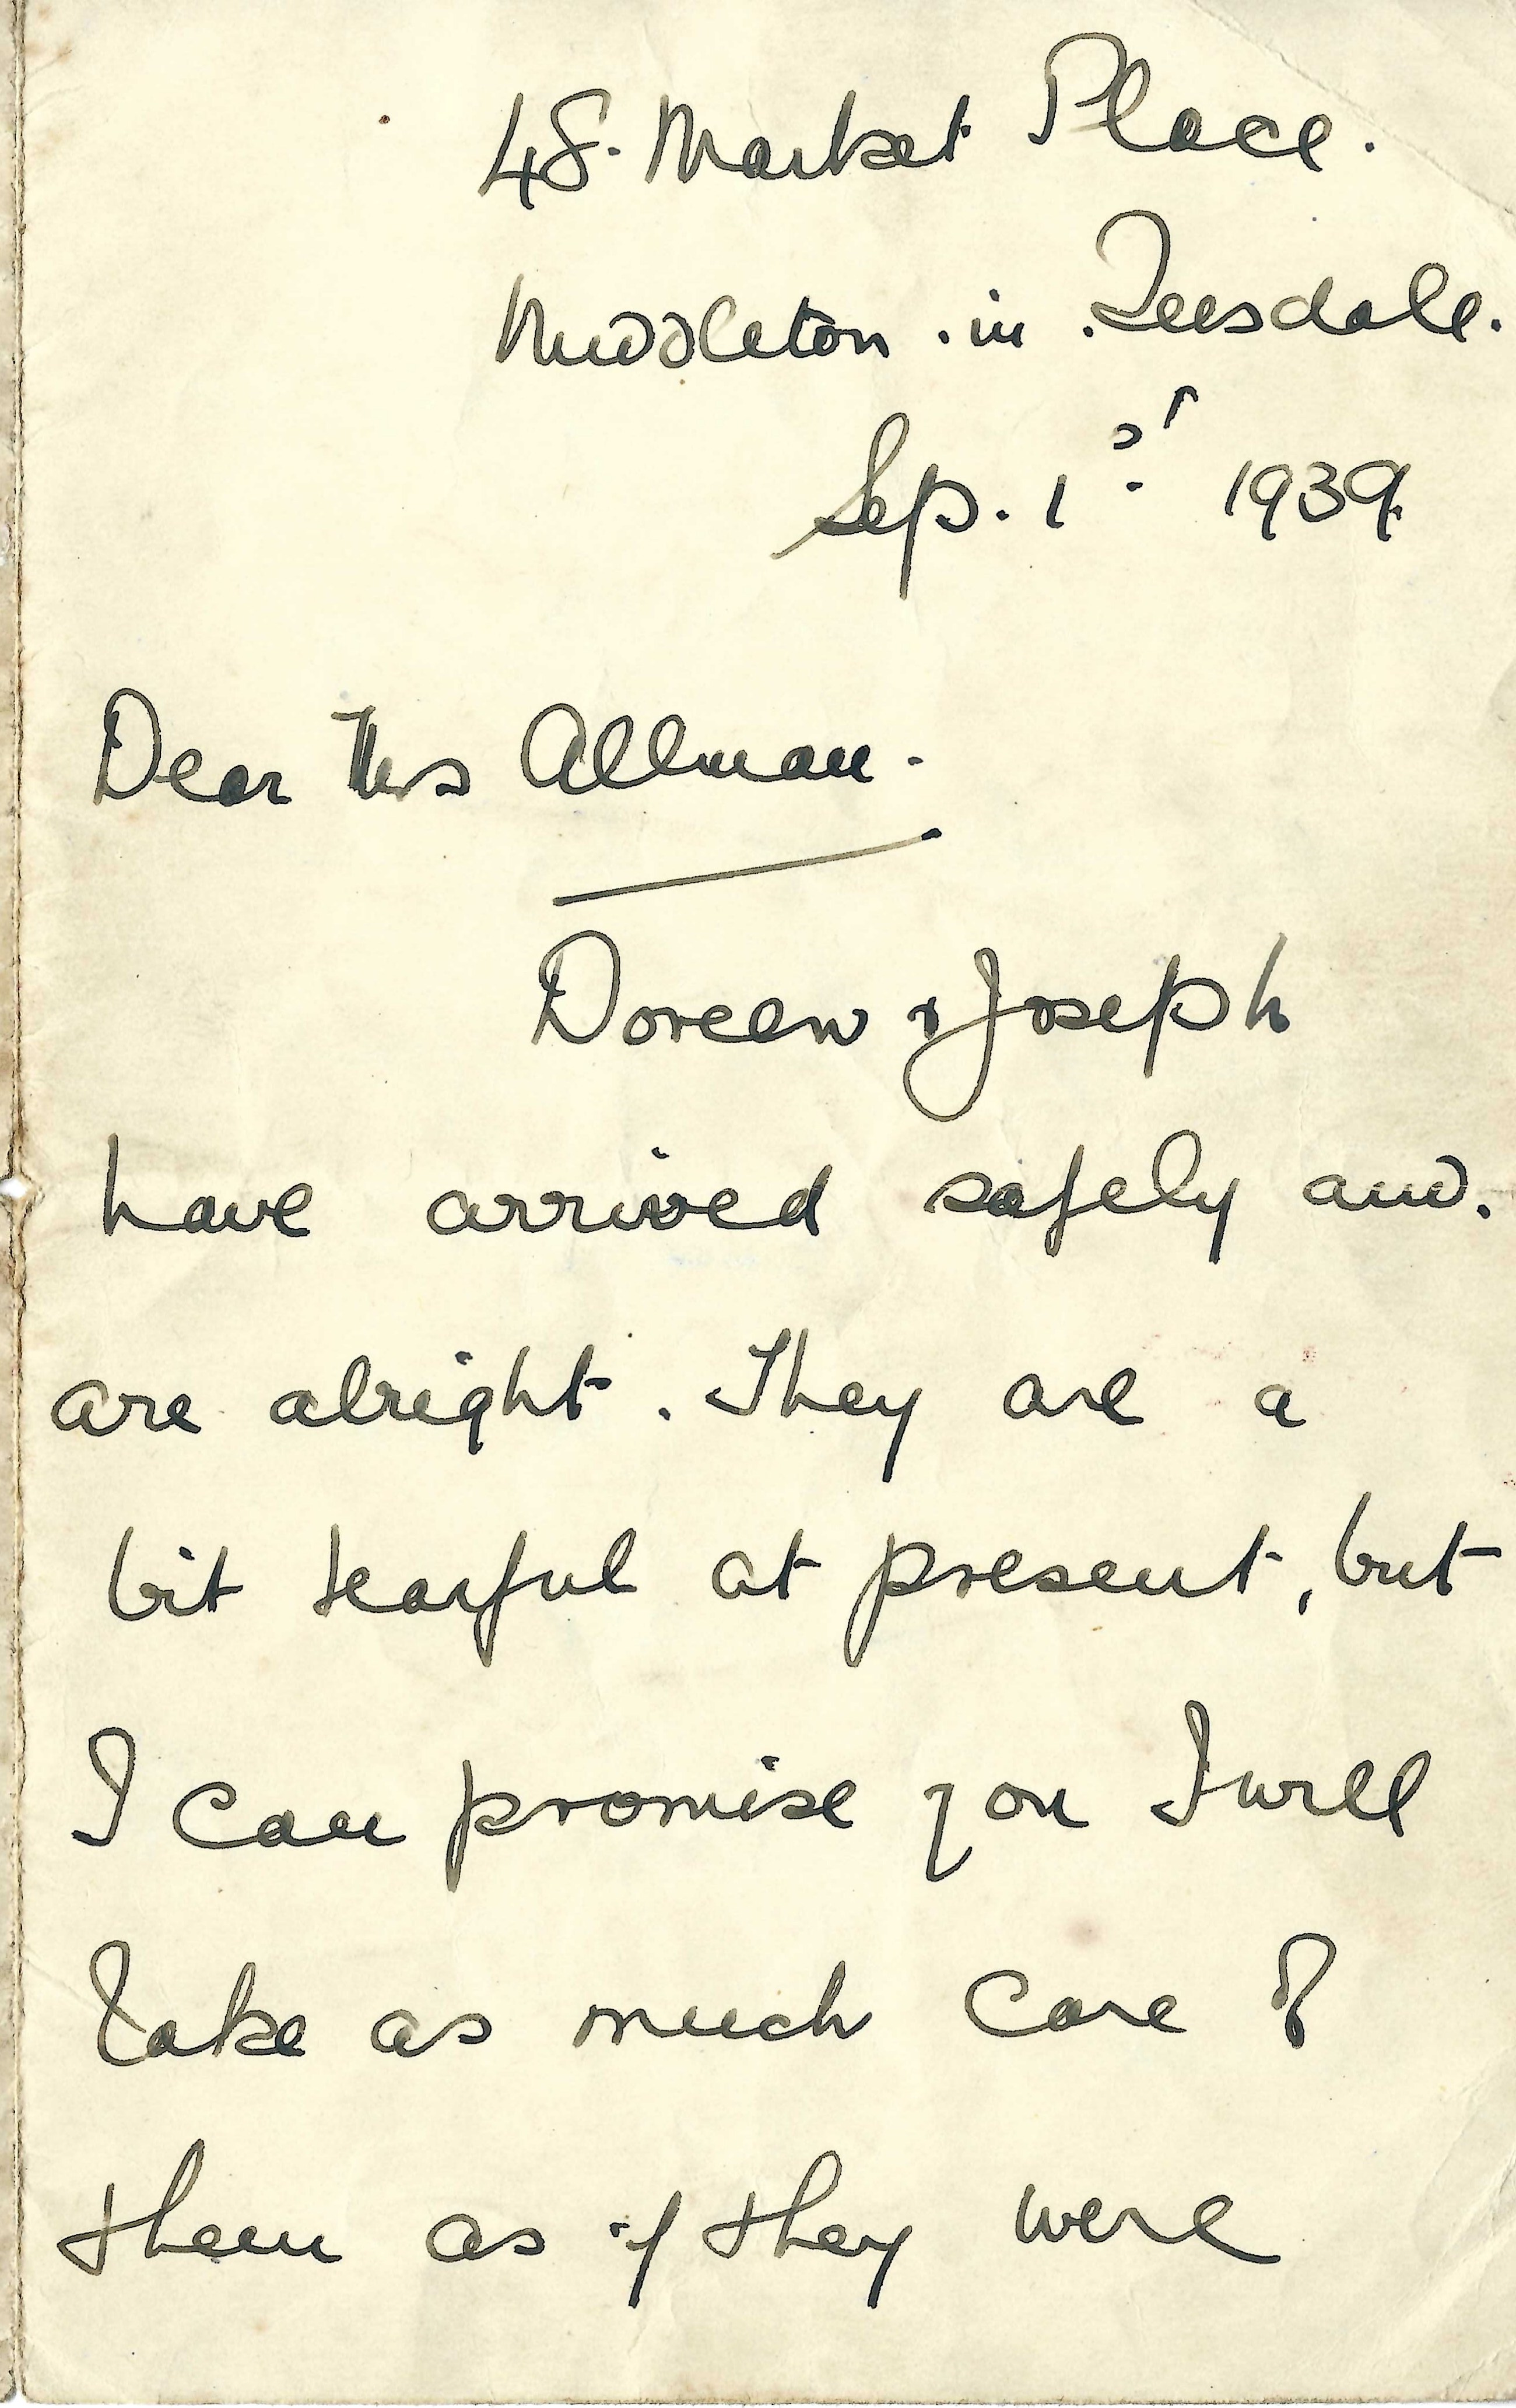 48. Market Place.
Middleton. in. Teesdale.
Sep. 1st 1939.
Dear Mrs Allman.
Doreen & Joseph
have arrived safely and.
are alright. They are a
bit tearful at present, but
I can promise you I will
take as much care of
them as if they were